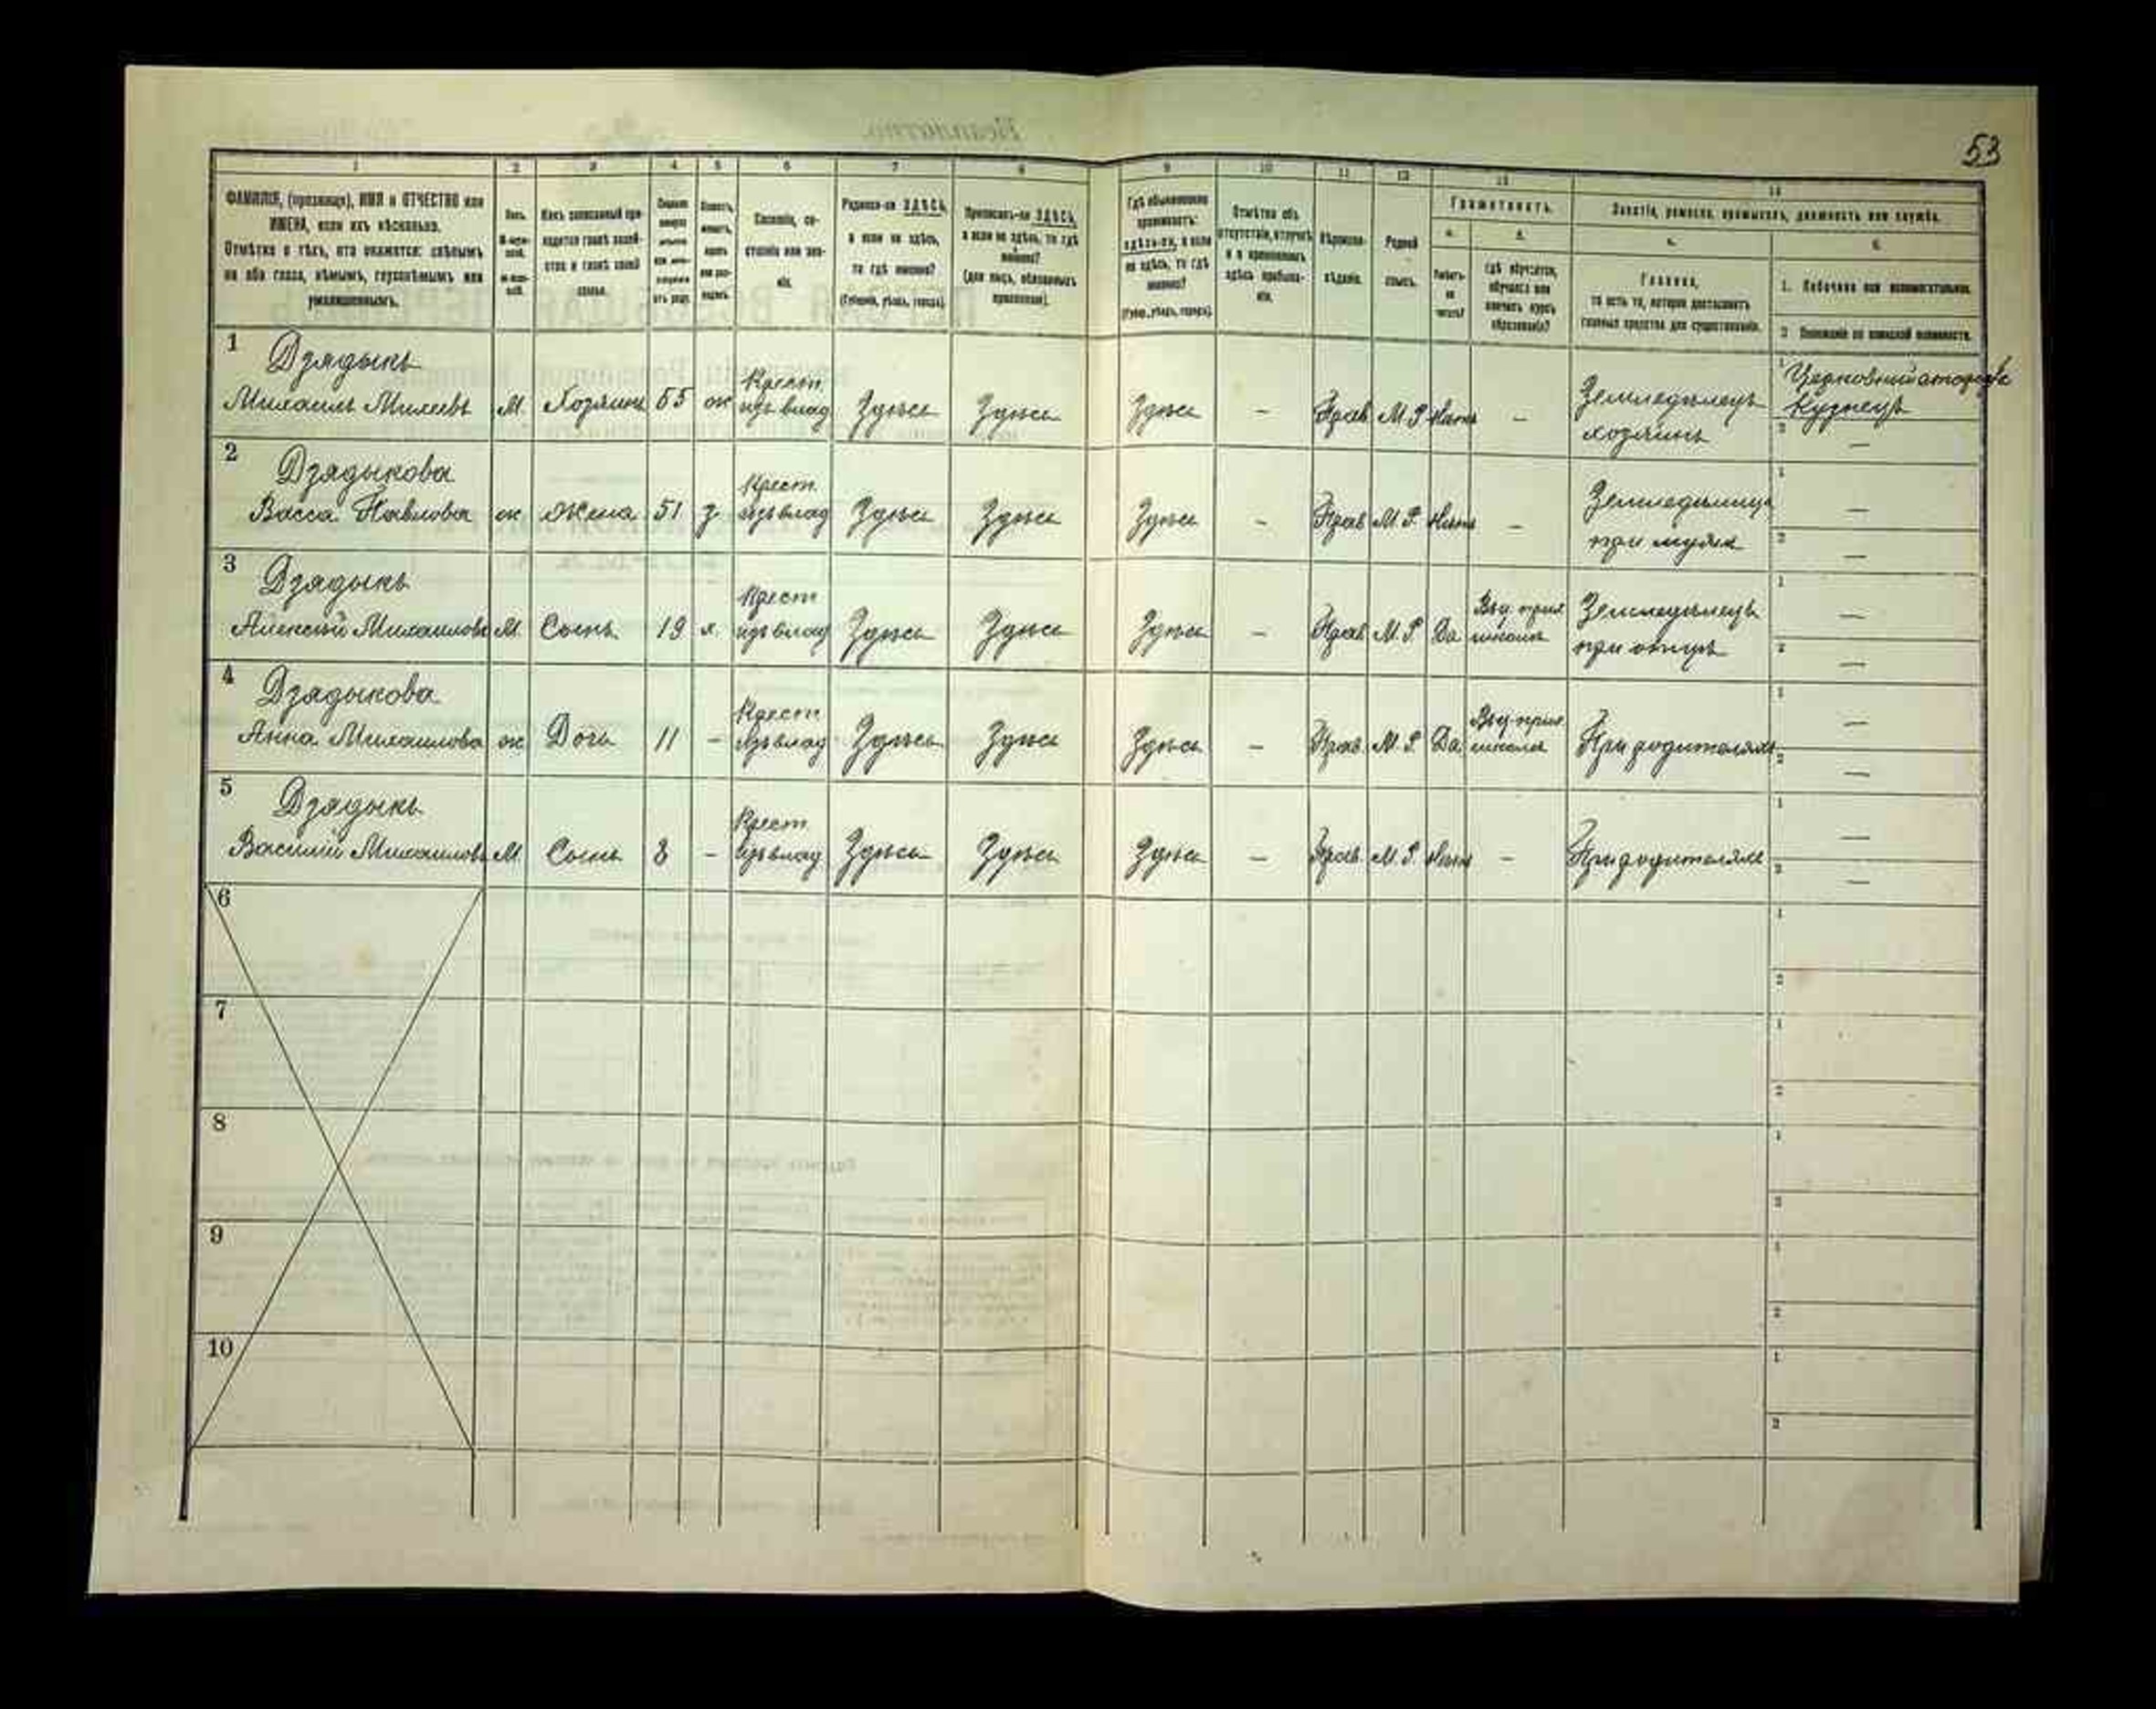 53
1 2 3 4 5 6 7 8 9 10 11 12 13 14
ФАМИЛІЯ, (прозвище), ИМЯ и ОТЧЕСТВО или
ИМЕНА, если ихъ нѣсколько.
Отмѣтка о тѣхъ, кто окажется: слѣпымъ
на оба глаза, нѣмымъ, глухонѣмымъ или
умалишеннымъ.
Полъ.
Какъ записанный при-
ходится главѣ хозяй-
ства и главѣ своей
семьи.
Сословіе, со-
стояніе или зва-
ніе.
Родился-ли ЗДѢСЬ,
а если не здѣсь,
то гдѣ именно?
(Губернія, уѣздъ, городъ).
Приписанъ-ли ЗДѢСЬ,
а если не здѣсь, то гдѣ
именно?
(для лицъ, обязанныхъ
припискою).
Гдѣ обыкновенно
проживаетъ:
здѣсь-ли, а если
не здѣсь, то гдѣ
именно?
(Губер., уѣздъ, городъ).
Отмѣтка объ
отсутствіи, отлучкѣ
и о временномъ
здѣсь пребыва-
ніи.
Вѣроиспо-
вѣданіе.
Родной
языкъ.
Грамотность.
а. б.
Умѣетъ-
ли
читать?
гдѣ обучается,
обучался или
кончилъ курсъ
образованія?
Занятіе, ремесло, промыселъ, должность или служба.
а. б.
Главное,
то есть то, которое доставляетъ
главныя средства для существованія.
1. Побочное или вспомогательное.
2 Положеніе по воинской повинности.
1 Дзядыкъ
Михаилъ Михеевъ М. Хозяинъ 55 ж Крест. изъ влад Здѣсь Здѣсь Здѣсь – Прав М.Р Нѣтъ – Земледѣлецъ хозяинъ
1 Кузнецъ
2 —
2 Дзядыкова
Васса Павлова ж Жена 51 з Крест. изъ влад Здѣсь Здѣсь Здѣсь – Прав М.Р. Нѣтъ – Земледѣлица при мужѣ
1 —
2 —
3 Дзядыкъ
Алексѣй Михаиловъ М. Сынъ 19 х. Крест изъ влад Здѣсь Здѣсь Здѣсь – Прав М.Р Да школѣ Земледѣлецъ при отцѣ
1 —
2 —
4 Дзядыкова
Анна Михаилова ж Дочь 11 – Крест изъ влад Здѣсь Здѣсь Здѣсь – Прав. М.Р. Да школѣ При родителяхъ
1 —
2 —
5 Дзядыкъ
Василій Михаиловъ М. Сынъ 8 – Крест изъ влад Здѣсь Здѣсь Здѣсь – Прав. М.Р. Нѣтъ – При родителяхъ
1 —
2 —
6 1
2
7 1
2
8 1
2
9 1
2
10 1
2